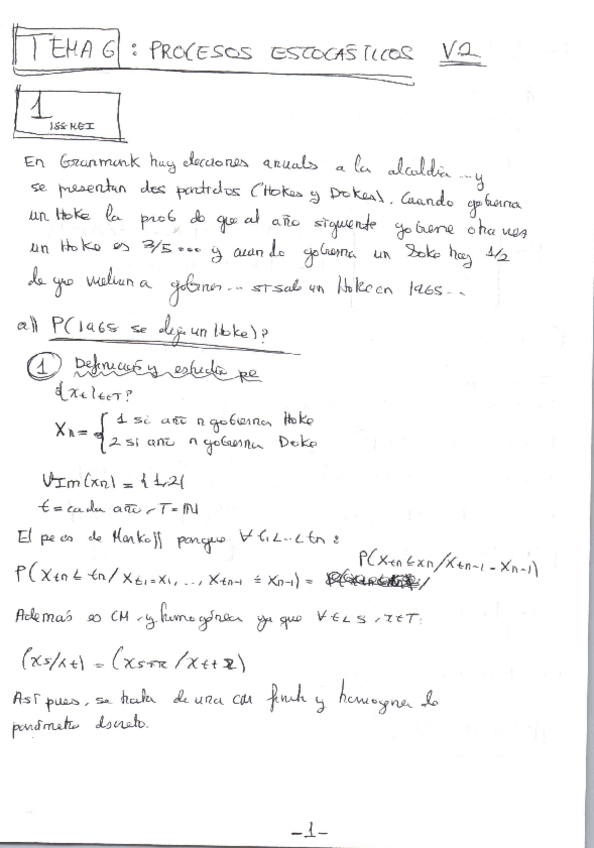 TEMA 6 : PROCESOS ESTOCÁSTICOS V.2
1
En Granmunk hay elecciones anuals a la alcaldía ... y
se presentan dos partidos (Hokes y Dokes). Cuando gobierna
un Hoke la prob de que al año siguiente gobierne otra vez
un Hoke es 3/5 ... y cuando gobierna un Doke hay 1/2
de que vuelvan a gobernar ... si sale un Hoke en 1965 ..
a)) P(1965 se elija un Hoke)?
1 Definición y estudio pe
{Xt}t∈T?
Xn = { 1 si año n gobierna Hoke
2 si año n gobierna Doke
Im(xn) = {1,2}
t = cada año, T = ℕ
El pe es de Markoff porque ∀ t1<..<tn :
P(Xtn ≤ xn / Xtn-1 = Xn-1)
P(Xtn ≤ tn / Xt1=X1, ..., Xtn-1 = Xn-1) =
Además es CM y homogénea ya que ∀ t<s, r∈T:
(Xs/Xt) = (Xs+r / Xt+r)
Así pues, se trata de una CM finita y homogénea de
parámetro discreto.
-1-